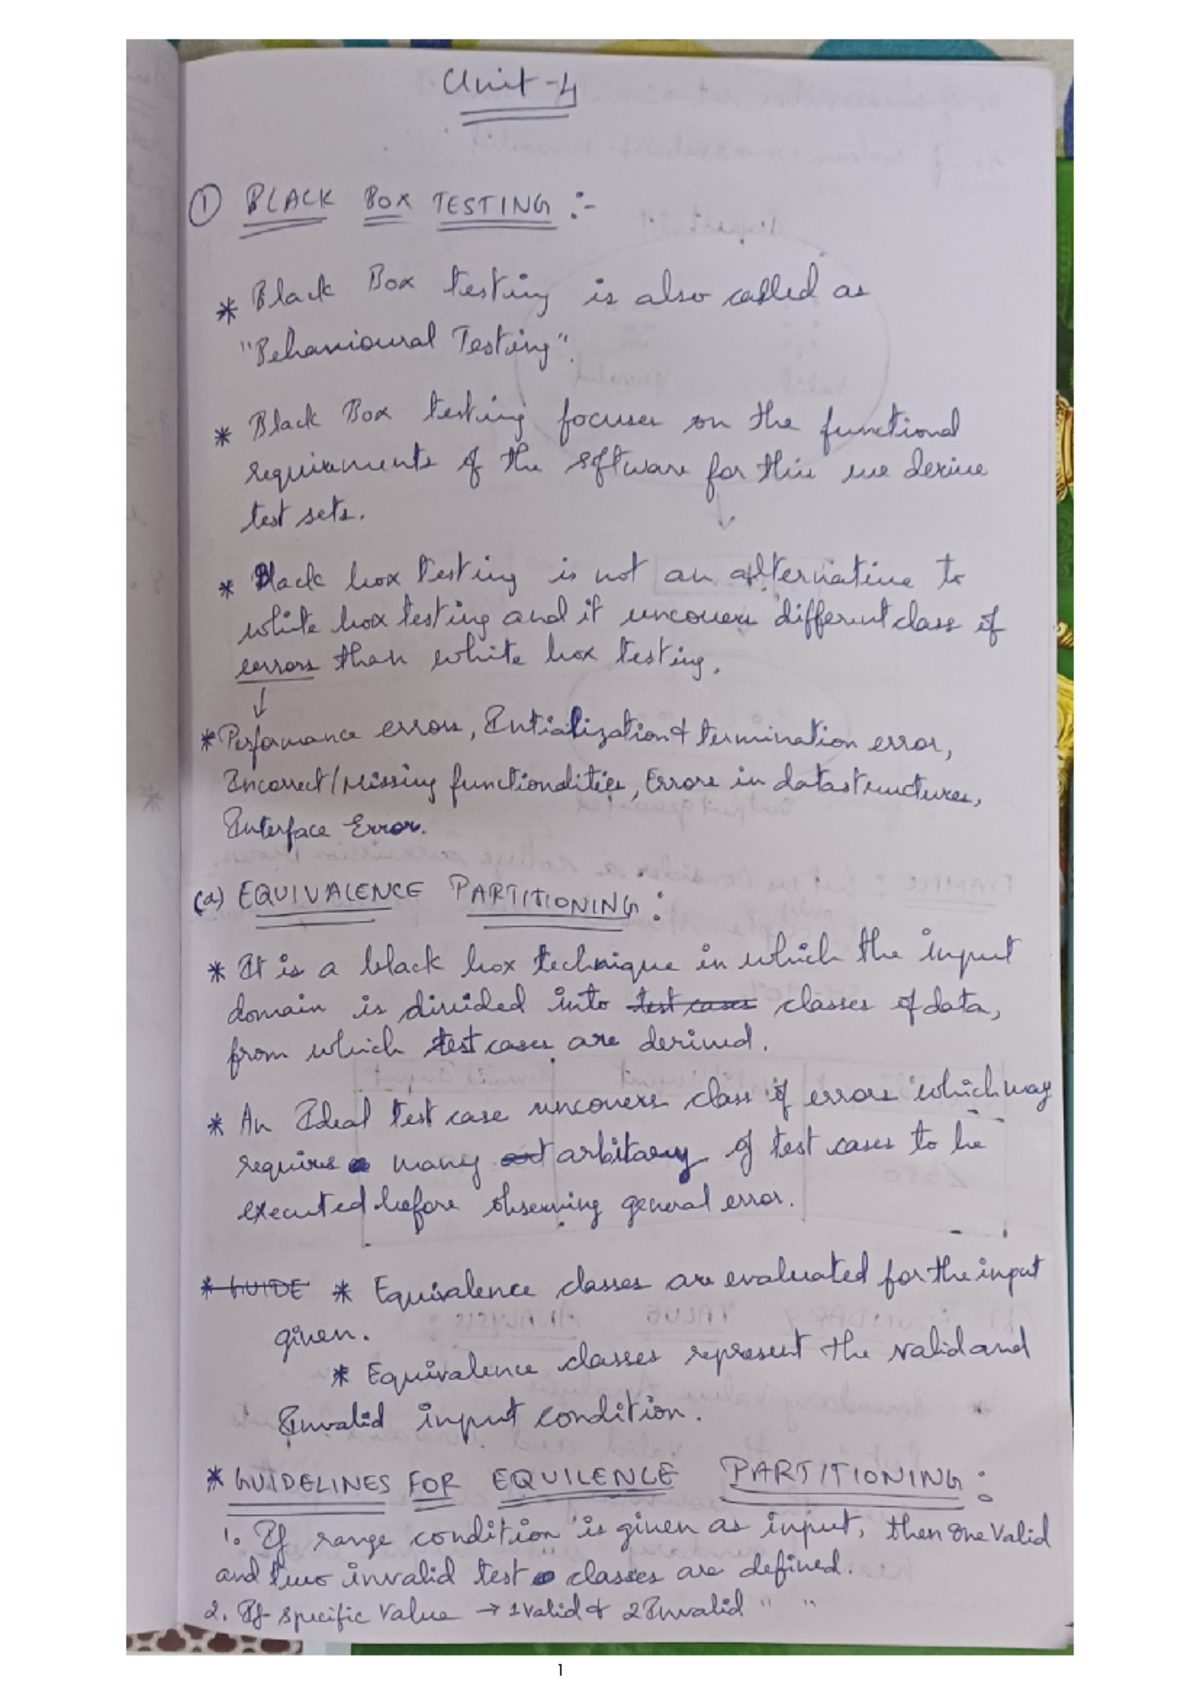 Unit-4
① BLACK BOX TESTING :-
* Black Box testing is also called as
"Behavioural Testing".
* Black Box testing focuses on the functional
requirements of the software for this we derive
test sets.
* Black box testing is not an alternative to
white box testing and it uncovers different class of
errors than white box testing.
↓
* Performance errors, Intialization & termination error,
Incorrect/Missing functionalities, Errors in datastructures,
Interface Error.
(a) EQUIVALENCE PARTITIONING :
* It is a black box technique in which the input
domain is divided into test cases classes of data,
from which test cases are derived.
* An Ideal test case uncovers class of errors which may
requires many arbitary of test cases to be
executed before observing general error.
* GUIDE * Equivalence classes are evaluated for the input
given.
* Equivalence classes represent the valid and
Invalid input condition.
* GUIDELINES FOR EQUILENCE PARTITIONING :
1. If range condition is given as input, then one Valid
and two invalid test classes are defined.
2. If specific Value → 1 Valid & 2 Invalid " "
1